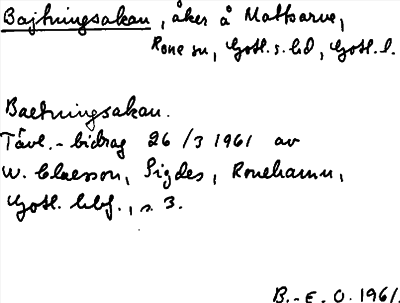 Bajtningsakan, åker å Mattsarve,
Rone sn, Gotl. s. hd, Gotl. l.
Baetningsakan.
Tävl.-bidrag 26/3 1961 av
W. Claesson, Sigdes, Ronehamn,
Gotl. hbf., s. 3.
B.-E. O. 1961.